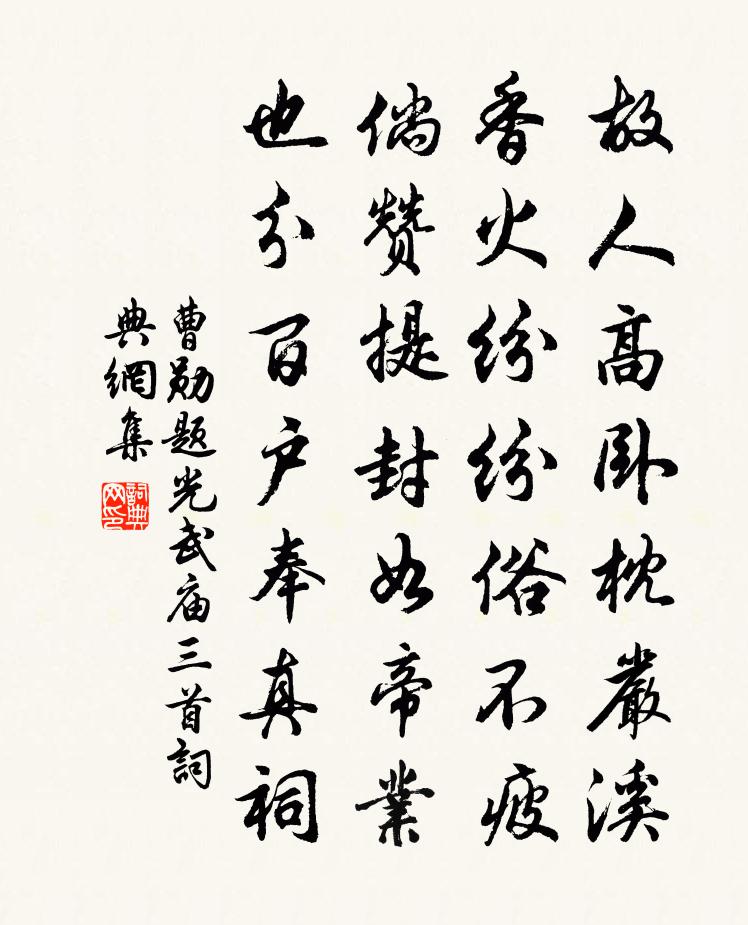 故人高卧枕嚴溪
香火紛紛俗不疲
倘贊提封如帝業
也分百户奉真祠
曹勛題光武庙三首詞
典網集
詞典
网印